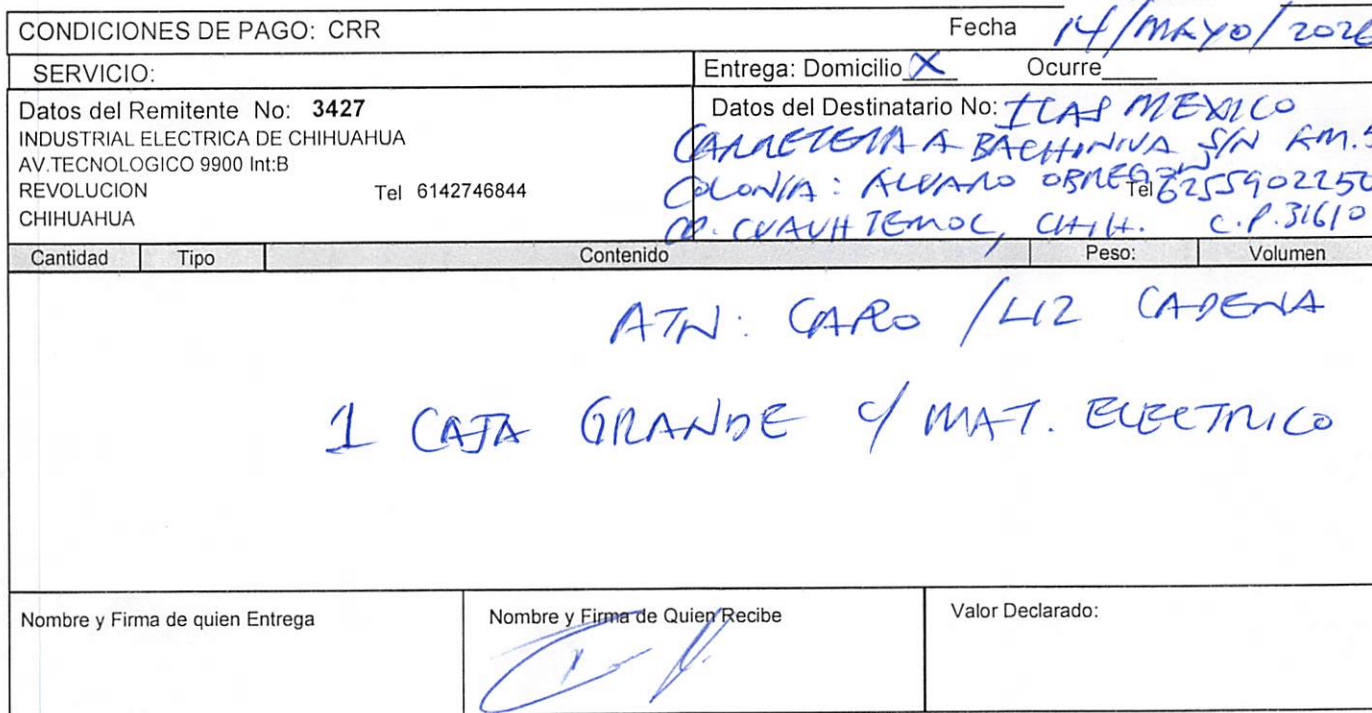 CONDICIONES DE PAGO: CRR Fecha 14/MAYO/2026
SERVICIO: Entrega: Domicilio X Ocurre____
Datos del Remitente No: 3427
INDUSTRIAL ELECTRICA DE CHIHUAHUA
AV.TECNOLOGICO 9900 Int:B
REVOLUCION Tel 6142746844
CHIHUAHUA
Datos del Destinatario No: ICAS MEXICO
CARRETERA A BACHINIVA S/N KM.5
COLONIA: ALVARO OBREGON Tel 6255902250
CD. CUAUHTEMOC, CHIH. C.P. 31610
Cantidad Tipo Contenido Peso: Volumen
ATN: CARO / LIZ CADENA
1 CAJA GRANDE C/ MAT. ELECTRICO
Nombre y Firma de quien Entrega Nombre y Firma de Quien Recibe Valor Declarado: